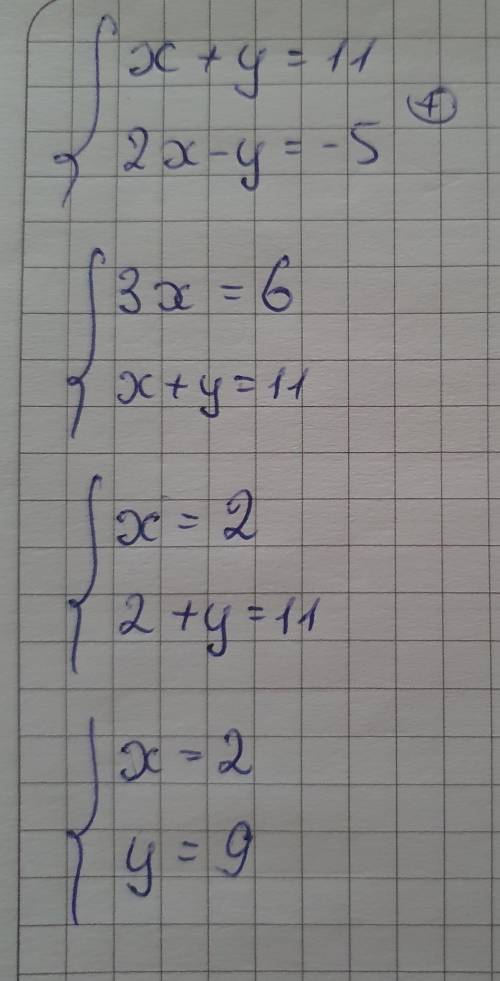 x + y = 11
2x - y = -5 (+)
3x = 6
x + y = 11
x = 2
2 + y = 11
x = 2
y = 9